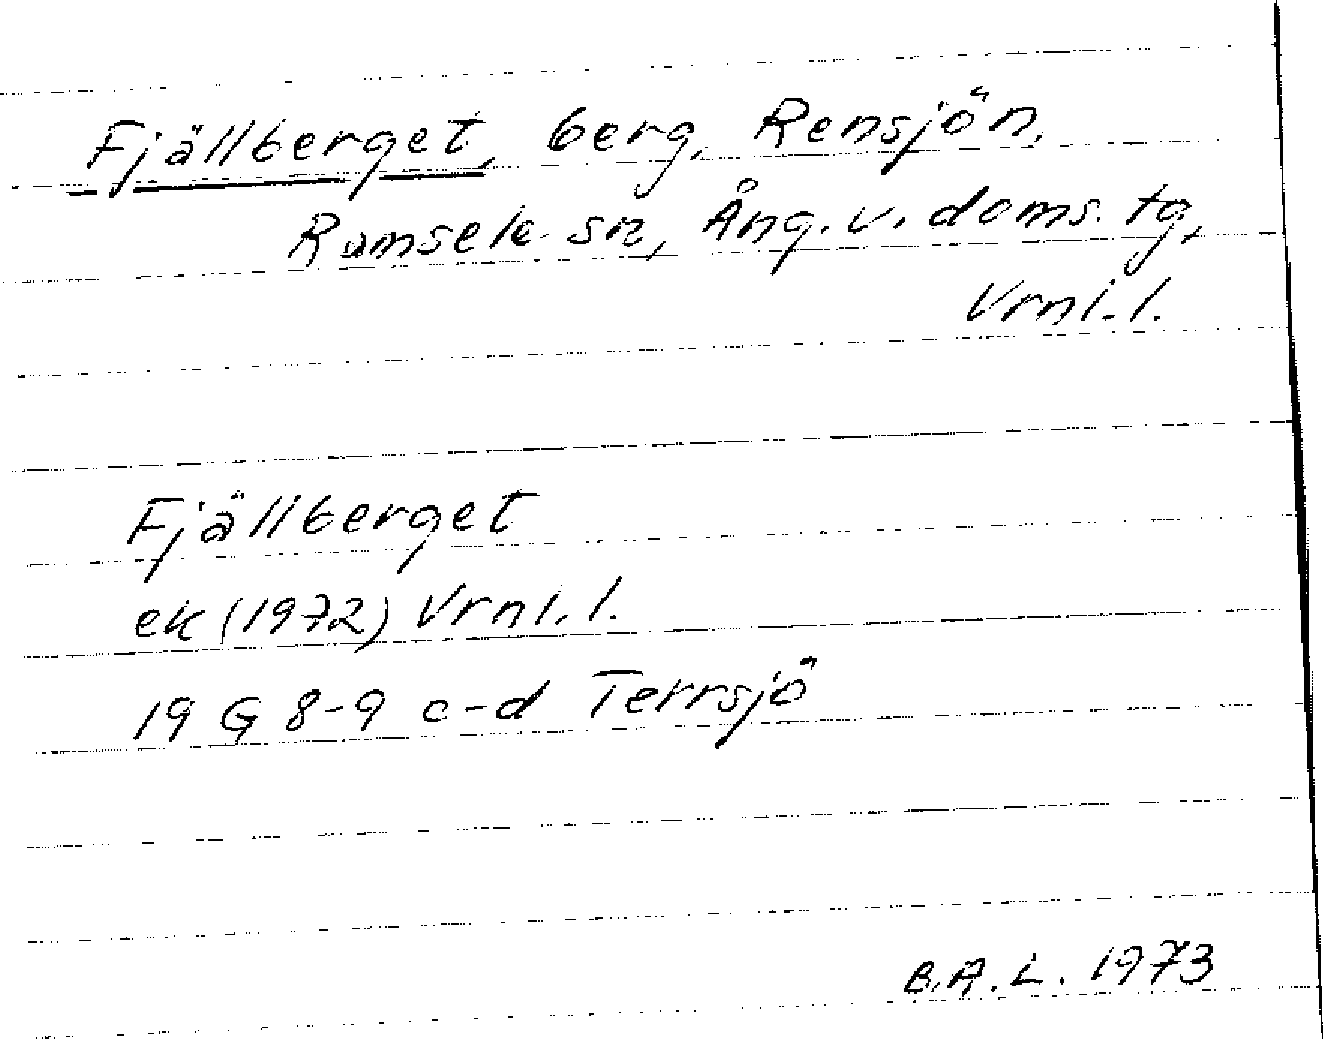 Fjällberget, berg, Rensjön,
Ramsele sn, Ång. v. doms. tg,
Vrnl. l.
Fjällberget
ek (1972) Vrnl. l.
19 G 8-9 c-d Terrsjö
B.A.L. 1973